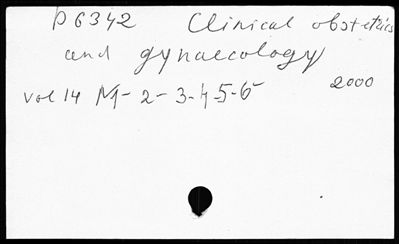 D 6342 Clinical obstetrics
and gynaecology
vol 14 N1- 2- 3-4-5-6 2000